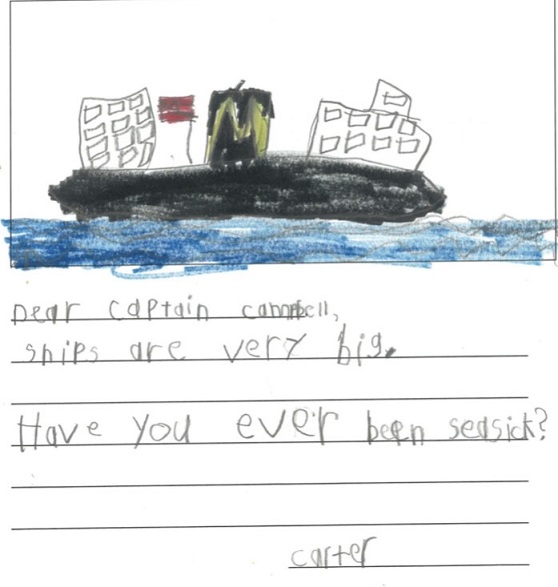 M
Dear captain campbell,
ships are very big.
Have you ever been seasick?
carter